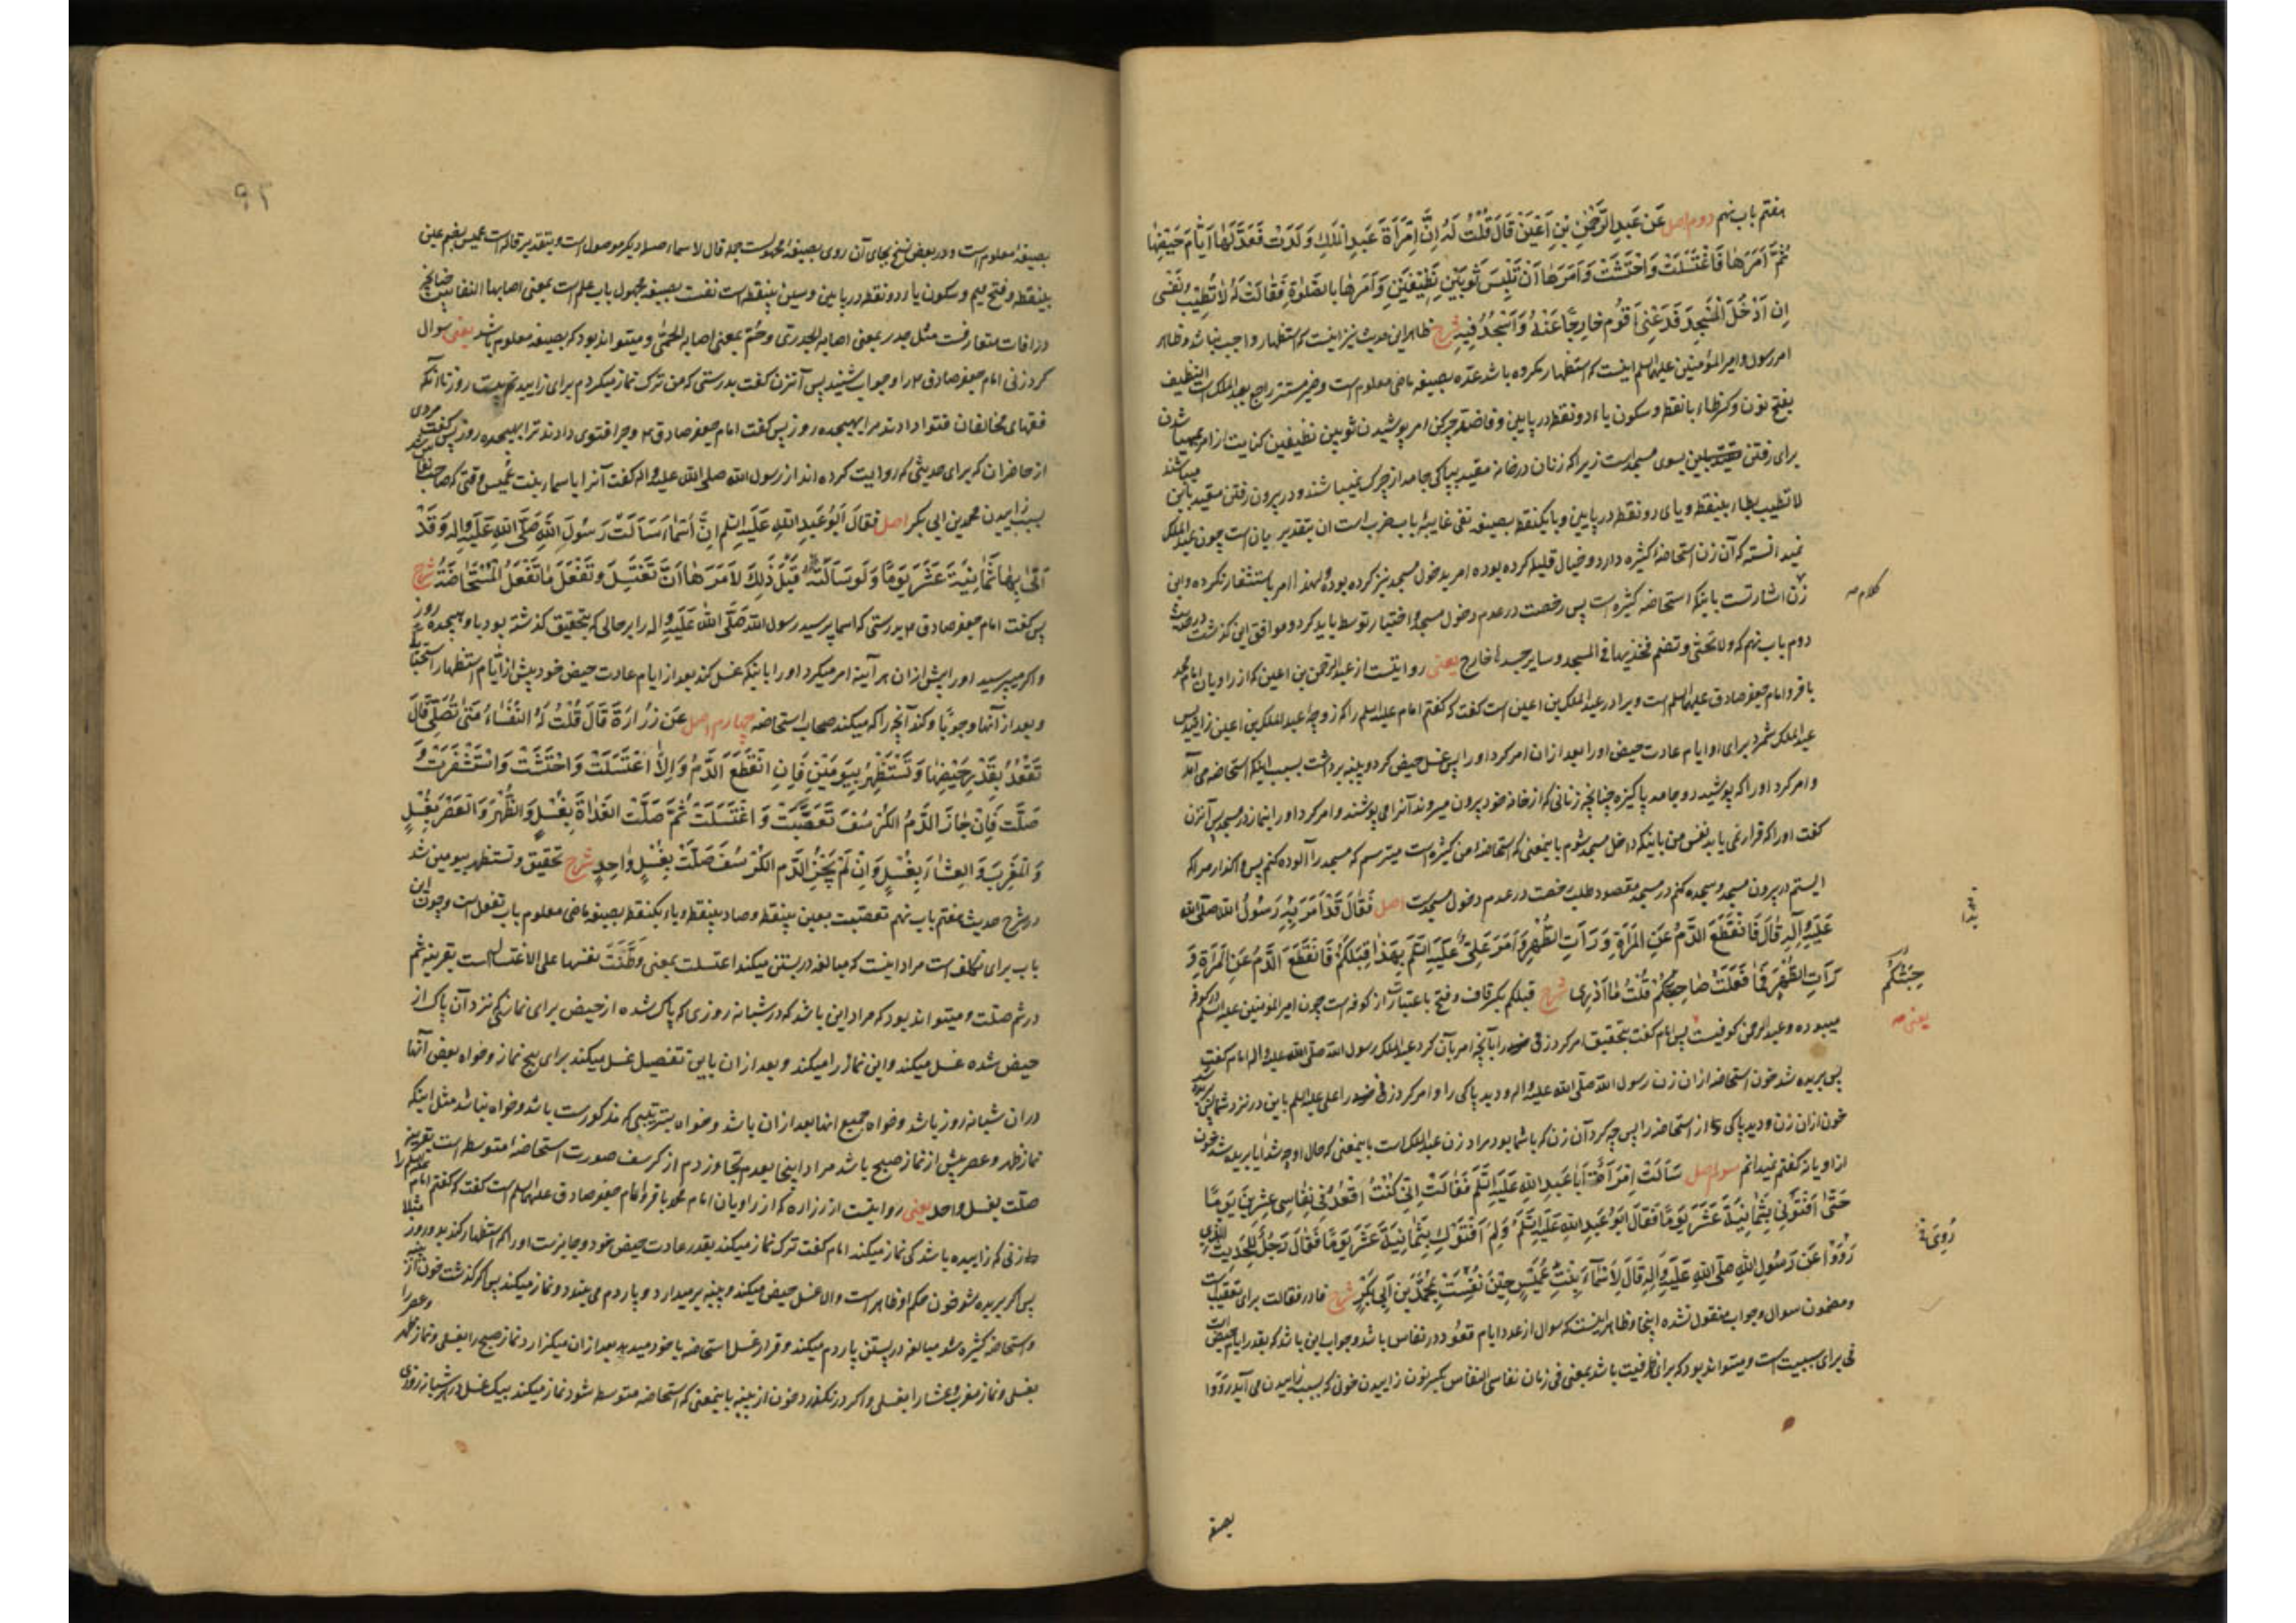 هفتم باب نهم دوم اصل عَن عَبدِ الرَّحْمٰنِ بْنِ اَعْيَنَ قَالَ قُلْتُ لَهُ اِنَّ اِمْرَأَةَ عَبدِ الْمَلِكِ وَلَدَتْ فَعَدَّ لَهَا اَيَّامَ حَيْضِهَا
ثُمَّ اَمَرَهَا فَاغْتَسَلَتْ وَاحْتَشَتْ وَاَمَرَهَا اَنْ تَلْبَسَ ثَوْبَيْنِ نَظِيْفَيْنِ وَاَمَرَهَا بِالصَّلٰوةِ فَقَالَتْ لَهُ لَا تَطِيْبُ نَفْسِی
اِن اَدْخُلَ الْمَسْجِدَ فَدَعْنِی اَقُوْم خَارِجًا عَنْهُ وَاَسْجُدُ فِيْهِ شرح ظاهر این حدیث نیز اینست که استظهار واجب نباشد و ظاهر
امر رسول و امیر المؤمنین علیهما السلم اینست که استظهار نکرده باشد عَدّ بصیغه ماضی معلوم است و ضمیر مستتر راجع بعبد الملک است النظیف
بفتح نون و کسر ظاء با نقطه و سکون یاء دو نقطه در پایین و فا ضد چرکن امر بپوشیدن ثوبین نظیفین کنایت از امر بمهیا شدن
برای رفتن بسوی مسجد است زیرا که زنان در خانه مقید بپاکی جامه از چرک نمیباشند و در بیرون رفتن مقید باین میباشند
لا تطیب بطاء بینقطه و یای دو نقطه در پایین و با یکنقطه بصیغه نفی غایبه باب ضرب است ان بتقدیر بان است چون عبد الملک
نمیدانسته که آن زن استحاضهٔ کثیره دارد و خیال قلیله کرده بوده امر بدخول مسجد نیز کرده بوده و لهذا امر باستثفار نکرده و این
زن اشارتست باینکه استحاضه کثیره است پس رخصت در عدم دخول مسجد و اختیار توسط باید کرد و موافق این گذشت در حدیث
دوم باب نهم که ولا تحتی وتضم فخذیها فی المسجد وسایر جسدها خارج یعنی روایتست از عبد الرحمن بن اعین که از راویان امام محمد
باقر و امام جعفر صادق علیهما السلم است و برادر عبد الملک بن اعین است گفت که گفتم امام علیه السلم را که زوجهٔ عبد الملک بن اعین زایید پس
عبد الملک شمرد برای او ایام عادت حیض او را بعد از آن امر کرد او را پس غسل حیض کرد و پنبه برداشت بسبب اینکه استحاضه می آمد
و امر کرد او را که پوشید دو جامه پاکیزه چنانچه زنانی که از خانه خود بیرون میروند آنرا می پوشند و امر کرد او را بنماز در مسجد پس آنزن
گفت او را که قرار نمی یابد نفس من باینکه داخل مسجد شوم باینمعنی که استحاضه من کثیره است میترسم که مسجد را آلوده کنم پس واگذار مرا که
ایستم در بیرون مسجد و سجده کنم در مسجد مقصود طلب رخصت در عدم دخول مسجد است اصل فَقَالَ قَدْ اَمَرَ بِهِ رَسُوْلُ اللّٰهِ صلی الله
عَلَيْهِ وَاٰلِهِ قَالَ فَانْقَطَعَ الدَّمُ عَنِ الْمَرْأَةِ وَرَأَتِ الطُّهْرَ وَاَمَرَ عَلِیٌّ عَلَيْهِ السَّلَمُ بِهٰذَا قَبْلَكُمْ فَانْقَطَعَ الدَّمُ عَنِ الْمَرْأَةِ وَ
رَأَتِ الطُّهْرَ فَمَا فَعَلَتْ صَاحِبَتُكُمْ قُلْتُ مَا اَدْرِی شرح قبلکم بکسر قاف و فتح با عبارت از کوفه است چون امیر المؤمنین علیه السلم در کوفه
میبوده و عبد الرحمن کوفیست پس امام گفت بتحقیق امر کرد زنی را بآنچه امر بآن کرد عبد الملک رسول الله صلی الله علیه و اله امام گفت
پس بریده شد خون استحاضه از ان زن رسول الله صلی الله علیه و اله و دید پاکی را و امر کرد زنی را علی علیه السلم باین در نزد شما پس بریده شد
خون از ان زن و دید پاکی از استحاضه را پس چه کرد آن زن که با شما بود مراد زن عبد الملک است باینمعنی که حال او چه شد ایا بریده شد خون
از او یا نه گفتم نمیدانم سوم اصل سَاَلَتْ اِمْرَأَةٌ اَبَا عَبدِ اللّٰهِ عَلَيْهِ السَّلَمُ فَقَالَتْ اِنِّی كُنْتُ اَقْعُدُ فِی نِفَاسِی عِشْرِيْنَ يَوْمًا
حَتّٰی اَفْتَوْنِی بِثَمَانِيَةَ عَشَرَ يَوْمًا فَقَالَ اَبُوْ عَبدِ اللّٰهِ عَلَيْهِ السَّلَمُ وَلِمَ اَفْتَوْكِ بِثَمَانِيَةَ عَشَرَ يَوْمًا فَقَالَ رَجُلٌ لِلْحَدِيْثِ الَّذِی
رَوَوْا عَن رَسُوْلِ اللّٰهِ صَلَّی اللّٰهُ عَلَيْهِ وَاٰلِهِ قَالَ لِاَسْمَاءَ بِنْتِ عُمَيْسٍ حِيْنَ نُفِسَتْ بِمُحَمَّدِ بْنِ اَبِی بَكْرٍ شرح فا در فقالت برای تعقیب است
و مضمون سوال و جواب منقول نشده اینجا و ظاهر اینست که سوال از عدد ایام قعود در نفاس باشد و جواب این باشد که بقدر ایام حیض است
فی برای سببیت است و میتواند بود که برای ظرفیت باشد بمعنی فی زمان نفاسی النفاس بکسر نون زاییدن خونی که بسبب زاییدن می آید رووا
بصیغه
کلام صه
جِئْتُكُمْ
یعنی صه
رُوِیَ
۹۲
بصیغهٔ معلوم است و در بعض نسخ بجای آن روی بصیغهٔ مجهولست جمله قال لاسماء صلهٔ دیگر موصول است و بتقدیر قاله است عمیس بضم عین
بینقطه و فتح میم و سکون یا دو نقطه در پایین و سین بینقطه است نفست بصیغه مجهول باب علم است بمعنی اصابها النفاس چنانچه
در آفات متعارفست مثل جدر بمعنی اصابه الجدری و حمّ بمعنی اصابه الحمّی و میتواند بود که بصیغه معلوم باشد یعنی سوال
کرد زنی امام جعفر صادق ع را و جواب شنید پس آنزن گفت بدرستی که من ترک نماز میکردم برای زاییدنم بیست روز تا آنکه
فقهای مخالفان فتوا دادند مرا بهیجده روز پس گفت امام جعفر صادق ع و چرا فتوی دادند ترا بهیجده روز پس گفت مردی
از حاضران که برای حدیثی که روایت کرده اند از رسول الله صلی الله علیه و اله گفت آنرا باسماء بنت عُمیس وقتی که صاحب نفاس شد
بسبب زاییدن محمد بن ابی بکر اصل فَقَالَ اَبُوْ عَبدِ اللّٰهِ عَلَيْهِ السَّلَمُ اِنَّ اَسْمَاءَ سَاَلَتْ رَسُوْلَ اللّٰهِ صَلَّی اللّٰهُ عَلَيْهِ وَاٰلِهِ وَقَدْ
اَتٰی بِهَا ثَمَانِيَةَ عَشَرَ يَوْمًا وَلَوْ سَاَلَتْهُ قَبْلَ ذٰلِكَ لَاَمَرَهَا اَنْ تَغْتَسِلَ وَتَفْعَلَ مَا تَفْعَلُ الْمُسْتَحَاضَةُ شرح
پس گفت امام جعفر صادق ع بدرستی که اسما پرسید رسول الله صَلَّی اللّٰهُ عَلَيْهِ و اله را بر حالی که بتحقیق گذشته بود باو هیجده روز
و اگر میپرسید او را پیش از آن هر آینه امر میکرد او را باینکه غسل کند بعد از ایام عادت حیض خود پیش از ایام استظهار استحبابًا
و بعد از آنها وجوبًا و کند آنچه را که میکنند صحاب استحاضه چهارم اصل عَن زُرَارَةَ قَالَ قُلْتُ لَهُ النُّفَسَاءُ مَتٰی تُصَلِّی قَالَ
تَقْعُدُ بِقَدْرِ حَيْضِهَا وَتَسْتَظْهِرُ بِيَوْمَيْنِ فَاِنِ انْقَطَعَ الدَّمُ وَاِلَّا اغْتَسَلَتْ وَاحْتَشَتْ وَاسْتَثْفَرَتْ وَ
صَلَّتْ فَاِنْ جَازَ الدَّمُ الكُرْسُفَ تَعَصَّبَتْ وَاغْتَسَلَتْ ثُمَّ صَلَّتِ الغَدَاةَ بِغُسْلٍ وَالظُّهْرَ وَالْعَصْرَ بِغُسْلٍ
وَالْمَغْرِبَ وَالعِشَاءَ بِغُسْلٍ وَاِنْ لَمْ يَجُزِ الدَّم الكُرْسُفَ صَلَّتْ بِغُسْلٍ وَاحِدٍ شرح تحقیق وتستظهر بیومین شد
در شرح حدیث هفتم باب نهم تعصّبت بعین بینقطه و صاد بینقطه و باء یکنقطه بصیغه ماضی معلوم باب تفعل است و چون این
باب برای تکلف است مراد اینست که مبالغه در بستن میکند اغتسلت بمعنی وَطَّنَتْ نفسها علی الاغتسال است بقرینه ثم
در ثم صلّت و میتواند بود که مراد این باشد که در شبانه روزی که پاک شده از حیض برای نمازیکه نزد آن پاک از
حیض شده غسل میکند و این نماز را میکند و بعد از آن باین تفصیل غسل میکند برای پنج نماز و خواه بعض آنها
در آن شبانه روز باشد و خواه جمیع انها بعد از آن باشد و خواه بترتیبی که مذکور است باشد و خواه نباشد مثل اینکه
نماز ظهر و عصر پیش از نماز صبح باشد مراد اینجا بعدم تجاوز دم از کرسف صورت استحاضهٔ متوسطه است بقرینه
صلّت بغسل واحد یعنی روایتست از زراره که از راویان امام محمد باقر و امام جعفر صادق علیهما السلم است گفت که گفتم امام علیه السلم را
که زنی که زاییده باشد کی نماز میکند امام گفت ترک نماز میکند بقدر عادت حیض خود و جایزست او را که استظهار کند بدو روز مثلا
پس اگر بریده شد خون حکم او ظاهر است و الا غسل حیض میکند و پنبه برمیدارد و پاردم می بندد و نماز میکند پس اگر گذشت خون از پنبه
و استحاضه کثیره شد مبالغه در بستن پاردم میکند و قرار غسل استحاضه با خود میدهد بعد از آن میگزارد نماز صبح را بغسلی و نماز ظهر و عصر را
بغسلی و نماز مغرب و عشا را بغسلی و اگر در نگذرد خون از پنبه باینمعنی که استحاضه متوسطه شود نماز میکند بیک غسل در هر شبانه روزی